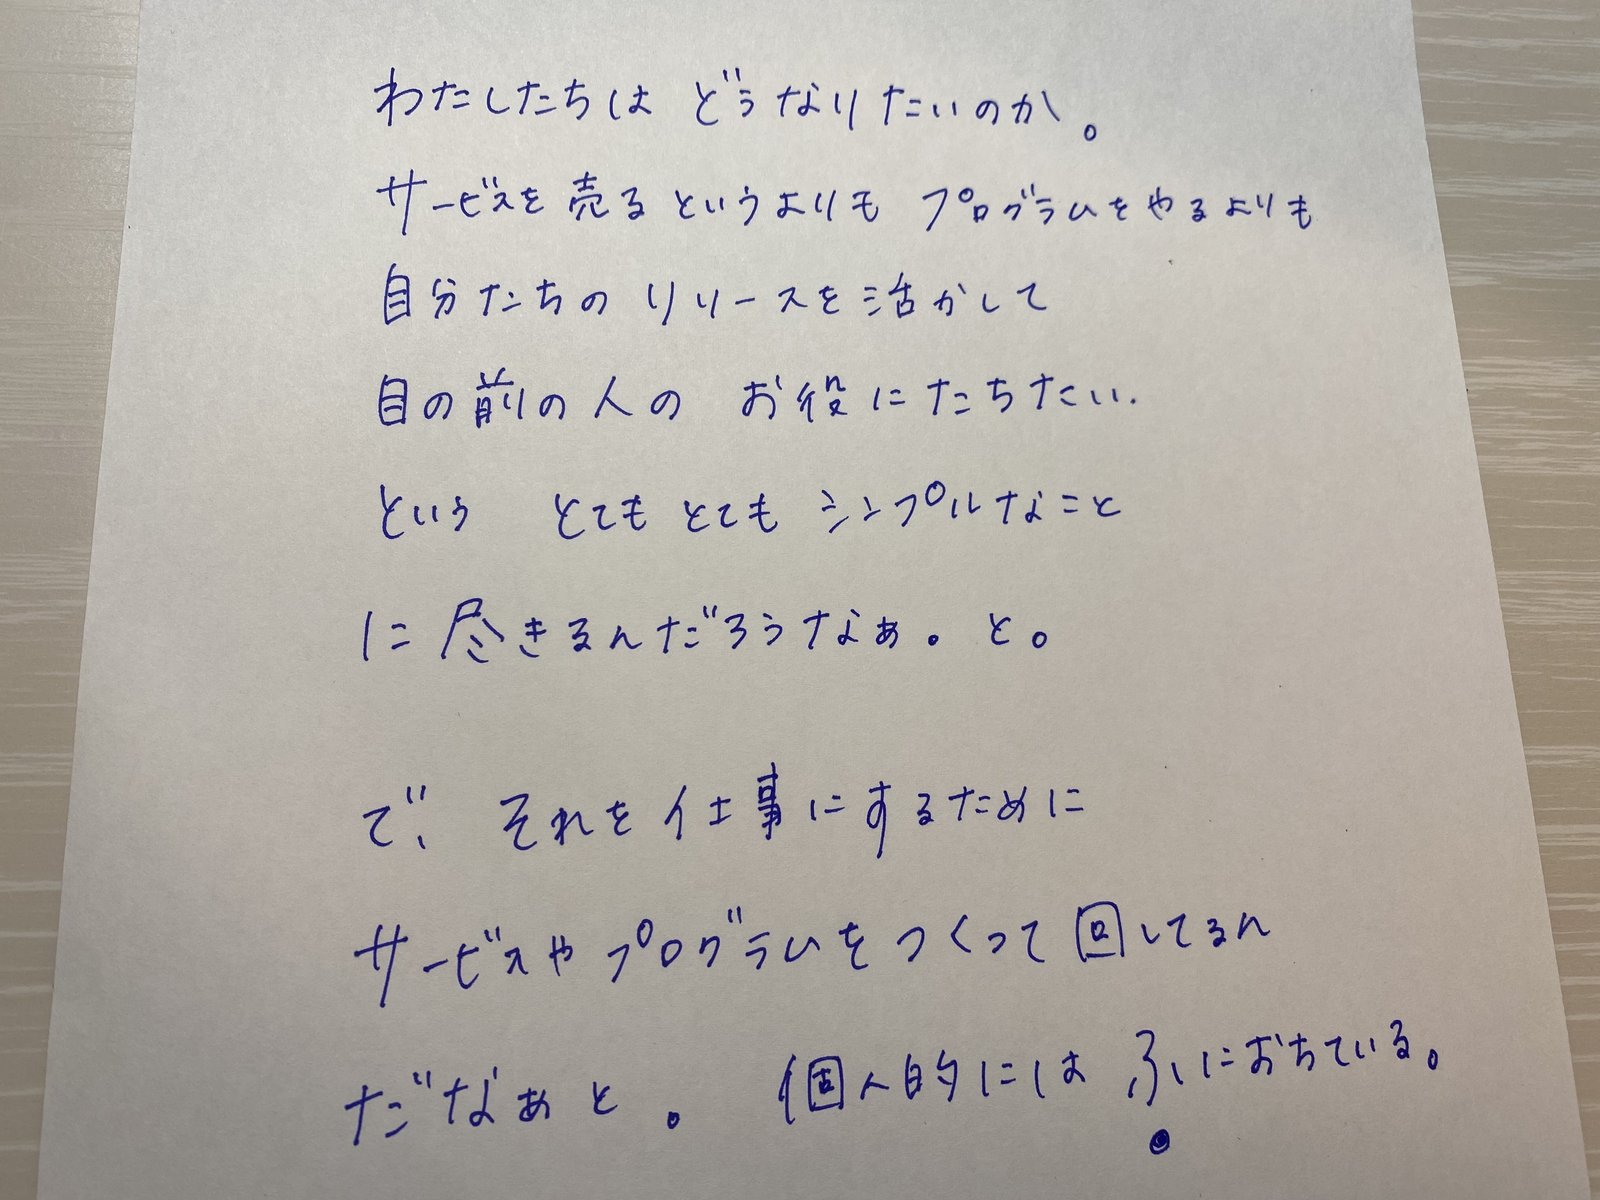 わたしたちは どうなりたいのか。
サービスを売るというよりも プログラムをやるよりも
自分たちの リリースを活かして
目の前の人の お役にたちたい.
という とてもとても シンプルなこと
に尽きるんだろうなぁ。と。
で、それを仕事にするために
サービスやプログラムをつくって回してるん
だなぁと。 個人的には ふにおちている。